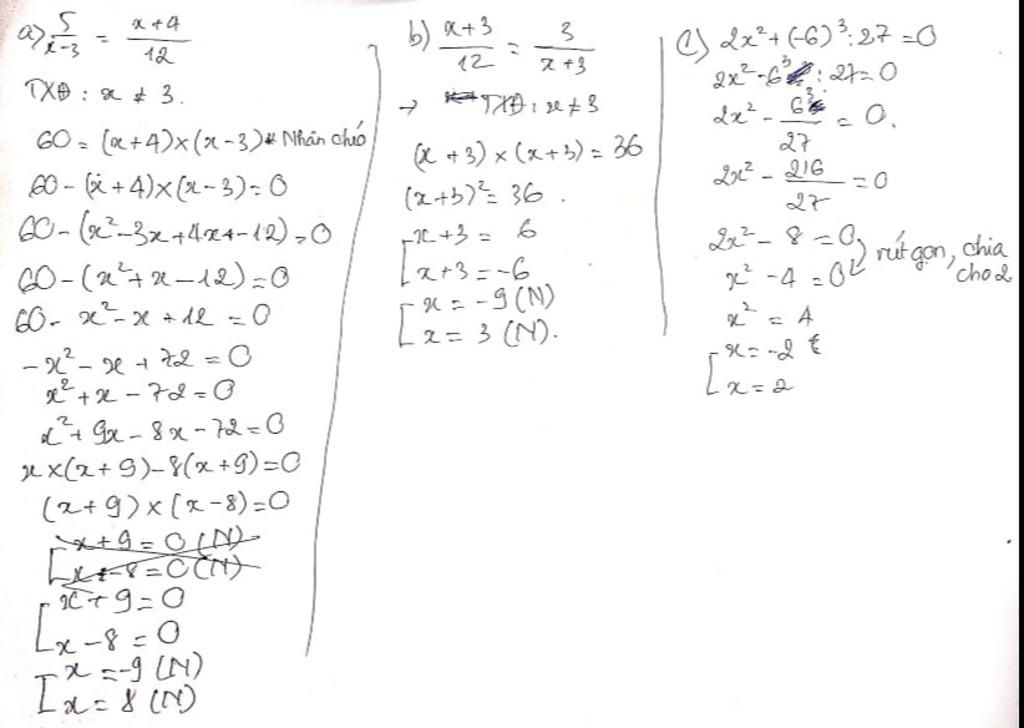 a) 5/(x-3) = (x+4)/12
TXĐ : x ≠ 3.
60 = (x+4)×(x-3) * Nhân chéo
60 - (x+4)×(x-3) = 0
60 - (x²-3x+4x+-12) = 0
60 - (x²+x-12) = 0
60 - x² - x + 12 = 0
-x² - x + 72 = 0
x² + x - 72 = 0
x² + 9x - 8x - 72 = 0
x×(x+9) - 8(x+9) = 0
(x+9)×(x-8) = 0
x+9 = 0 (N)
x-8 = 0 (N)
[ x+9 = 0
x-8 = 0
[ x = -9 (N)
x = 8 (N)
b) (x+3)/12 = 3/(x+3)
→ TXĐ : x ≠ 3
(x+3)×(x+3) = 36
(x+3)² = 36.
[ x+3 = 6
x+3 = -6
[ x = -9 (N)
x = 3 (N).
c) 2x² + (-6)³ : 27 = 0
2x² - 6³ : 27 = 0
2x² - 6³/27 = 0.
2x² - 216/27 = 0
2x² - 8 = 0
x² - 4 = 0
rút gọn, chia
cho 2
x² = 4
[ x = -2
x = 2